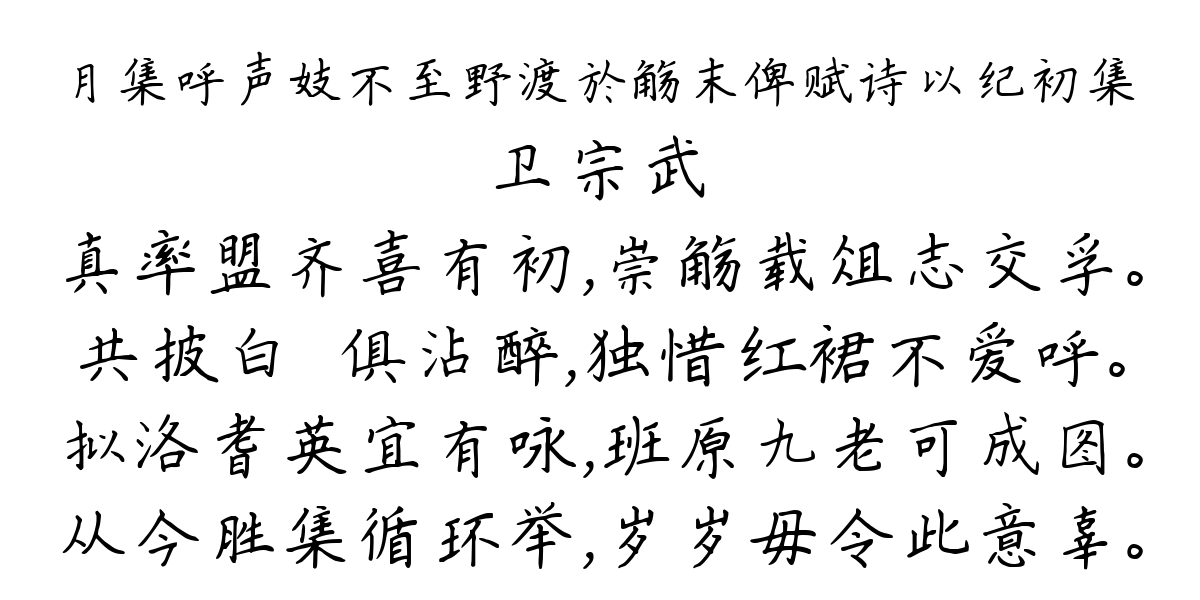 月集呼声妓不至野渡於觞末俾赋诗以纪初集
卫宗武
真率盟齐喜有初,崇觞载俎志交孚。
共披白 俱沾醉,独惜红裙不爱呼。
拟洛耆英宜有咏,班原九老可成图。
从今胜集循环举,岁岁毋令此意辜。